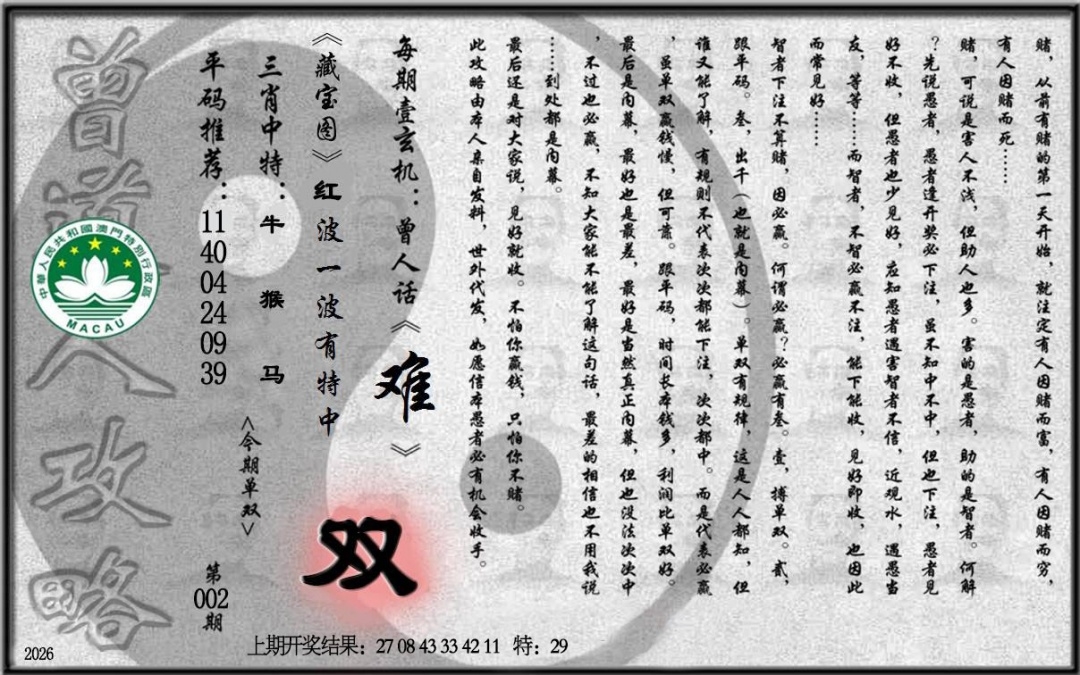 赌，从前有赌的第一天开始，就注定有人因赌而富，有人因赌而穷，
有人因赌而死……
赌，可说是害人不浅，但助人也多。害的是愚者，助的是智者。何解
？先说愚者，愚者逢开奖必下注，虽不知中不中，但也下注，愚者见
好不收，但愚者也少见好，应知愚者遇害智者不信，近观水，遇愚当
友，等等……而智者，不智必赢不注，能下能收，见好即收，也因此
而常见好……
智者下注不算赌，因必赢。何谓必赢？必赢有叁。壹，搏单双。贰，
跟平码。叁，出千（也就是内幕）。单双有规律，这是人人都知，但
谁又能了解，有规则不代表次次都能下注，次次都中。而是代表必赢
，虽单双赢钱慢，但可靠。跟平码，时间长本钱多，利润比单双好。
最后是内幕，最好也是最差，最好是当然真正内幕，但也没法次次中
，不过也必赢，不知大家能不能了解这句话，最差的相信也不用我说
……到处都是内幕。
最后还是对大家说，见好就收。不怕你赢钱，只怕你不赌。
此攻略由本人亲自发料，世外代发，如愿信本愚者必有机会收手。
每期壹玄机：曾人话《难》
《藏宝图》红波一波有特中
双
三肖中特：牛 猴 马
<今期单双>
平码推荐：11 40 04 24 09 39
第002期
曾道人攻略
中華人民共和國澳門特別行政區
MACAU
上期开奖结果：27 08 43 33 42 11 特：29
2026